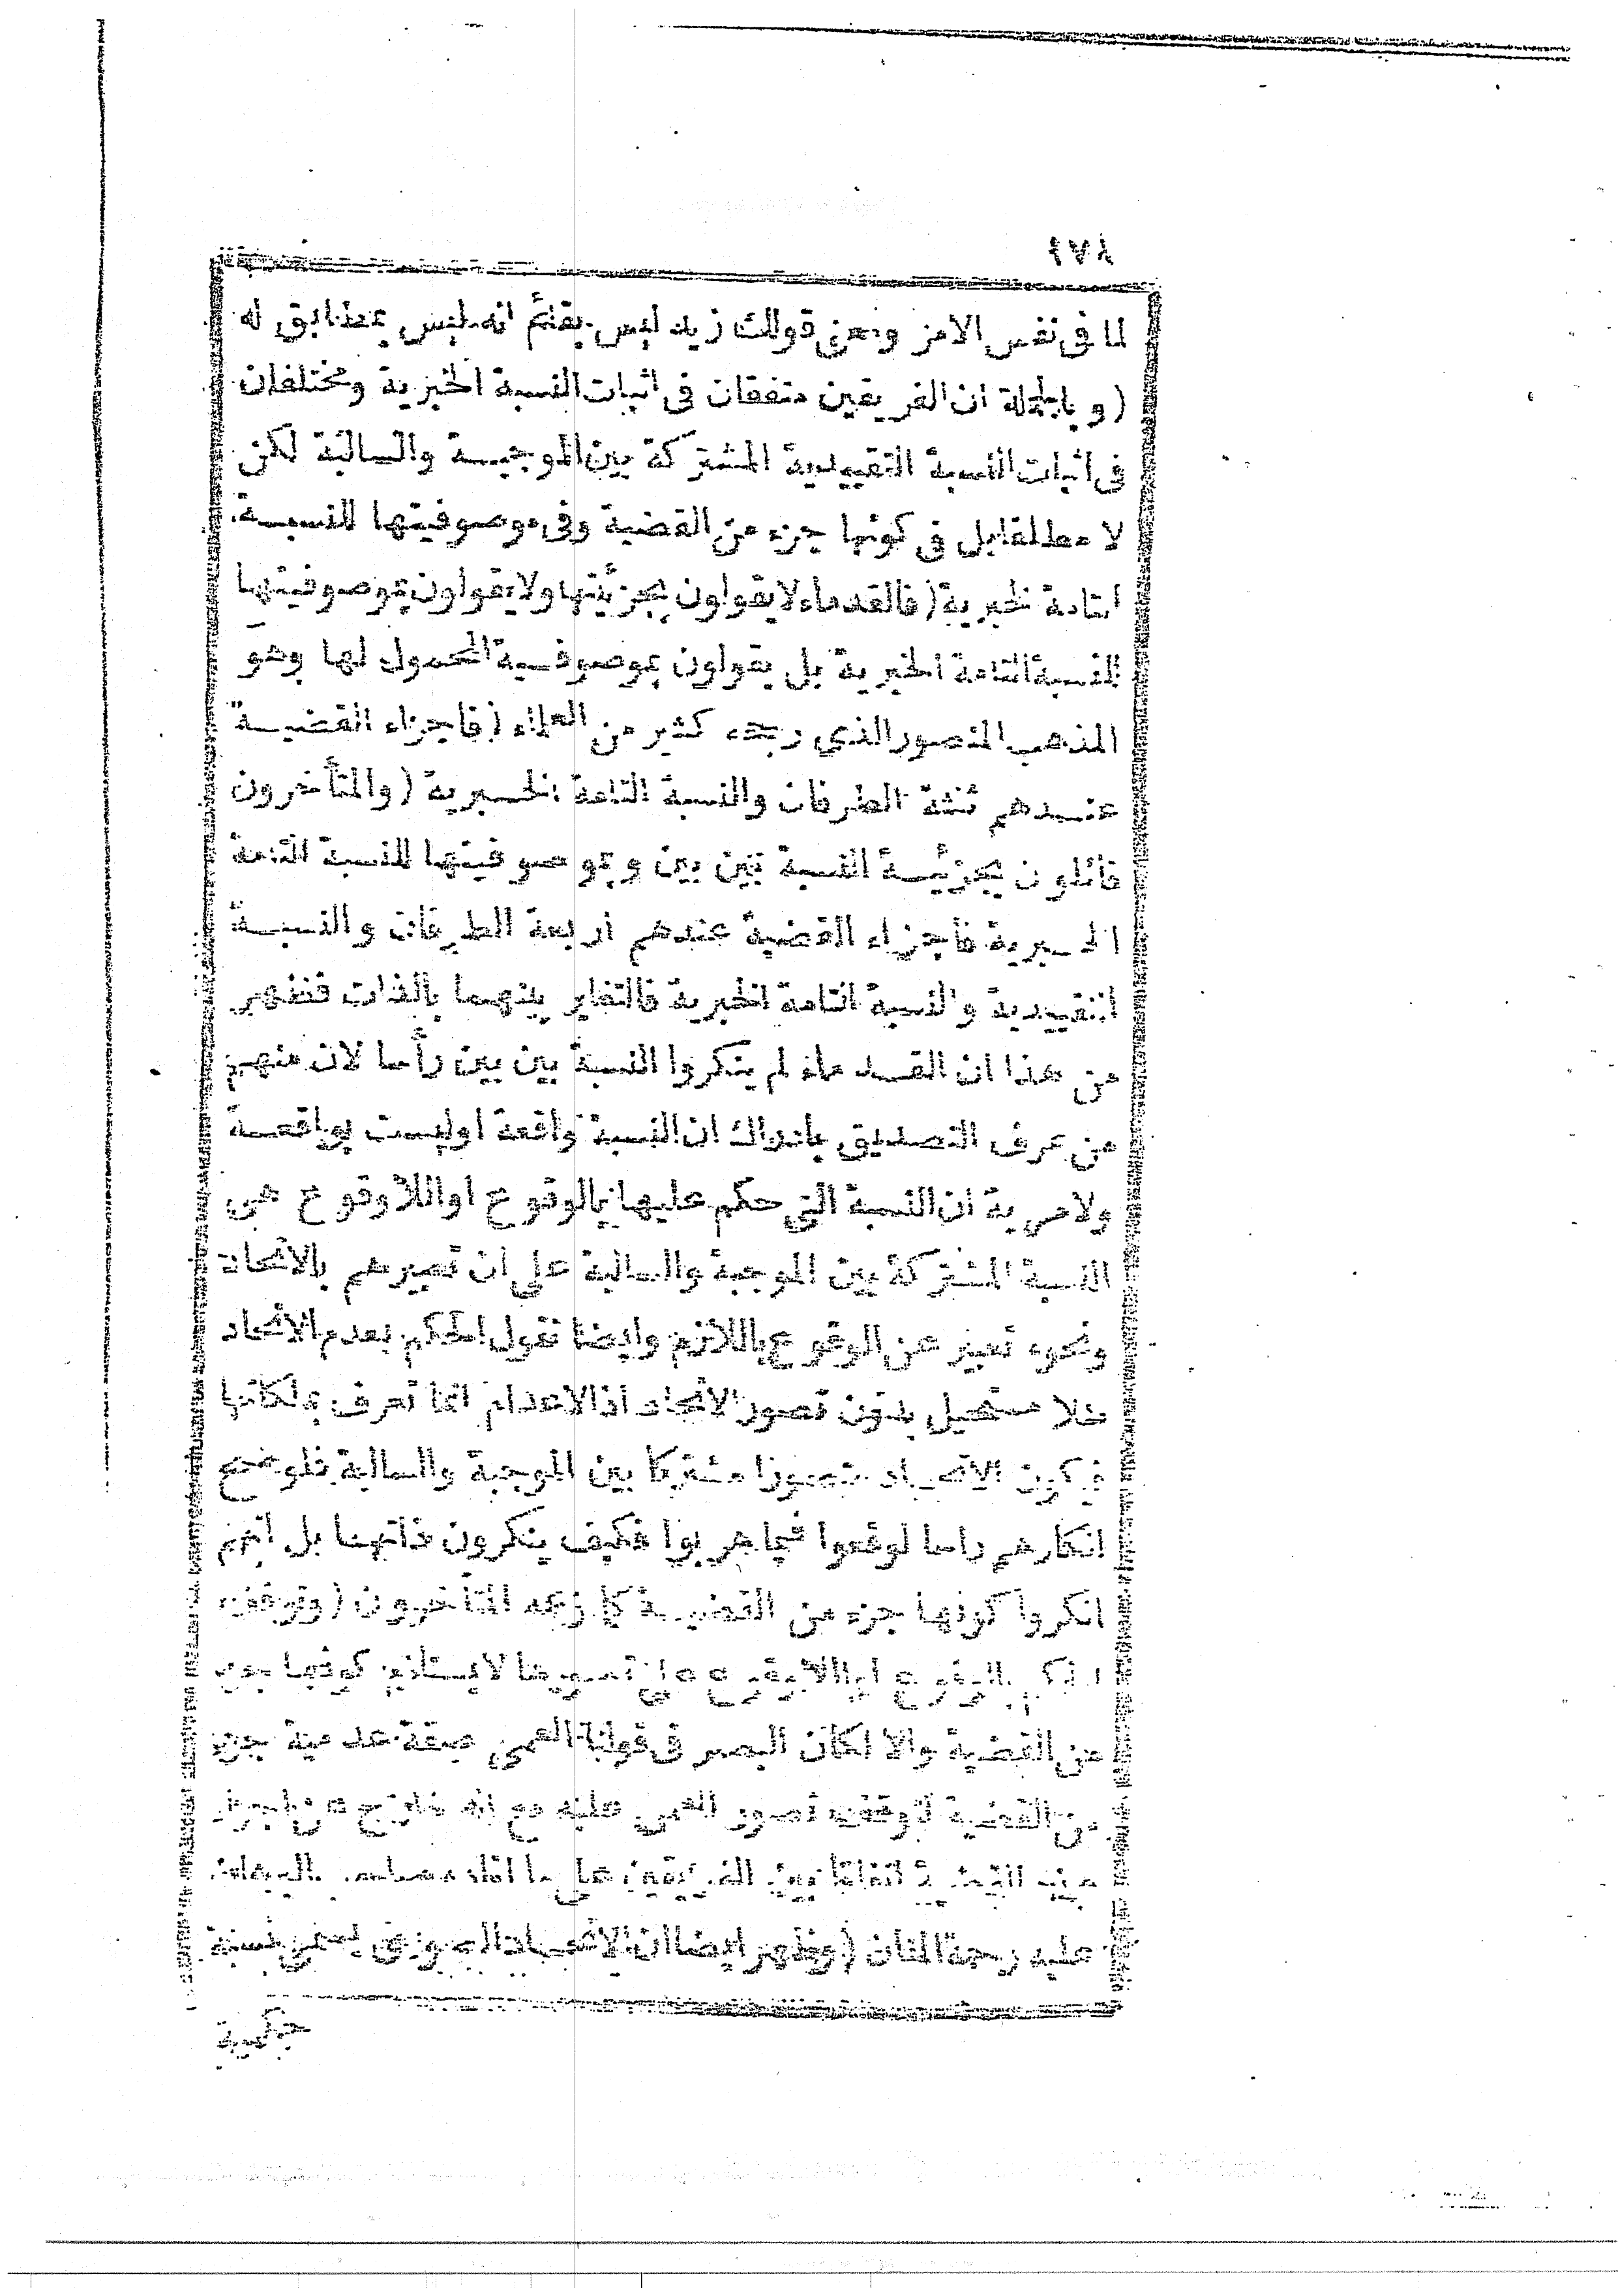 ٤٧٨
لما فى نفس الامر ومعنى قولك زيد ليس بقائم انه ليس بمطابق له
(وبالجملة ان الفريقين متفقان فى اثبات النسبة الخبرية ومختلفان
فى اثبات النسبة التقييدية المشتركة بين الموجبة والسالبة لكن
لا مطلقا بل فى كونها جزء من القضية وفى موصوفيتها للنسبة
التامة الخبرية (فالقدماء لا يقولون بجزئيتها ولا يقولون بموصوفيتها
للنسبة التامة الخبرية بل يقولون بموصوفية المحمول لها وهو
المذهب المنصور الذى رجحه كثير من العلماء (فاجزاء القضية
عندهم ثلثة الطرفان والنسبة التامة الخبرية (والمتأخرون
قائلون بجزئية النسبة بين بين وبموصوفيتها للنسبة التامة
الخبرية فأجزاء القضية عندهم أربعة الطرفان والنسبة
التقييدية والنسبة التامة الخبرية فالتغاير بينهما بالذات فظهر
من هذا ان القدماء لم ينكروا النسبة بين بين رأسا لان منهم
من عرف التصديق بادراك ان النسبة واقعة اوليست بواقعة
ولا مرية ان النسبة التى حكم عليها بالوقوع او اللاوقوع هى
النسبة المشتركة بين الموجبة والسالبة على ان تعبيرهم بالاتحاد
ونحوه تعبير عن الوقوع باللازم وايضا نقول الحكم بعدم الاتحاد
مثلا مستحيل بدون تصور الاتحاد اذ الاعدام انما تعرف بملكاتها
فيكون الاتحاد متصورا مشتركا بين الموجبة والسالبة فلو صح
انكارهم راسا لوقعوا فيما هربوا فكيف ينكرون ذاتها بل انهم
انكروا كونها جزء من القضية كما زعمه المتأخرون (وتوقف
الحكم بالوقوع او اللاوقوع على تصورها لا يستلزم كونها جزء
من القضية والا لكان البصر فى قولنا العمى صفة عدمية جزء
من القضية لتوقف تصور العمى عليه مع انه خارج عن اجزاء
هذه القضية اتفاقا بين الفريقين على ما افاده
عليه رحمة المنان (وظهر ايضا ان الاتحاد المعنى نسبة
حكمية